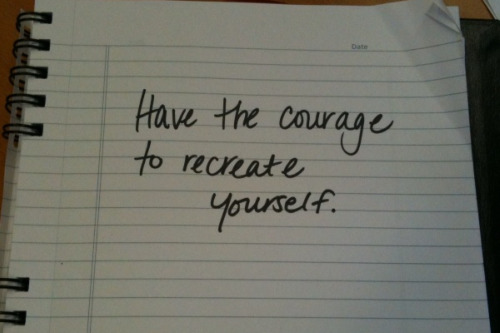 Date
Have the courage
to recreate
yourself.